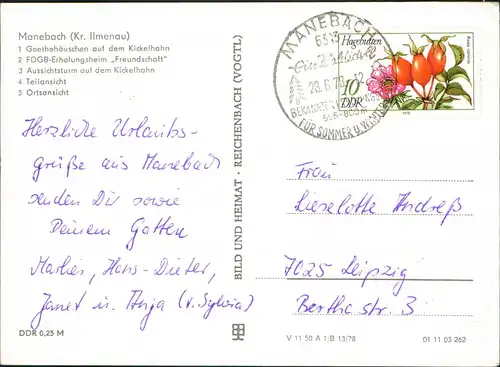 Manebach (Kr. Ilmenau)
1 Goethehäuschen auf dem Kickelhahn
2 FDGB-Erholungsheim „Freundschaft"
3 Aussichtsturm auf dem Kickelhahn
4 Teilansicht
5 Ortsansicht
Herzliche Urlaubs-
grüße aus Manebach
senden Dir sowie
Deinem Gatten
Marlies, Hans-Dieter,
Janet u. Anja (v. Sylvia)
DDR 0,25 M
BILD UND HEIMAT · REICHENBACH (VOGTL)
MANEBACH
FÜR SOMMER U. WINTER
Hagebutten
Rosa canina
10
DDR
1978
Frau
Lieselotte Andreß
7025 Leipzig
Berthastr. 3
V 11 50 A 1/B 13/78
01 11 03 262